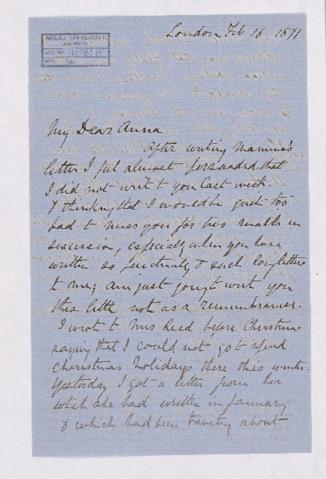 London Feb 16 1871
My Dear Anna
After writing Mamma's
letter I felt almost persuaded that
I did not write to you last week.
& thinking that it would be quite too
bad to miss you for two weeks in
succession, especially when you have
written so punctually & such long letters
to me, am just going to write you
this little note as a remembrance.
I wrote to Mrs Reed before Christmas
saying that I could not go & spend
Christmas Holidays there this winter.
Yesterday I got a letter from her
which she had written in January
& which had been travelling about